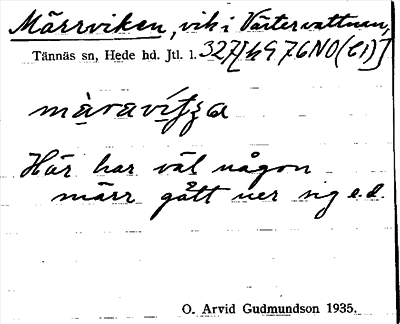 Märrviken, vik i Västervattnen,
Tännäs sn, Hede hd. Jtl. l. 327[h97.6NO(c1)]
Här har väl någon
märr gått ner sig e.d.
O. Arvid Gudmundson 1935.